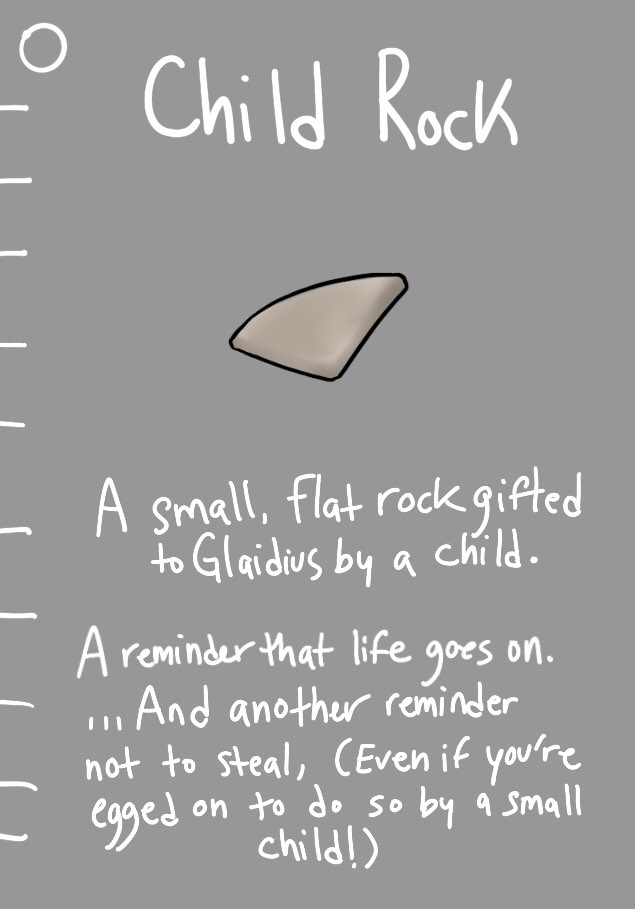 Child Rock
A small, flat rock gifted
to Glaidius by a child.
A reminder that life goes on.
...And another reminder
not to steal, (Even if you're
egged on to do so by a small
child!)